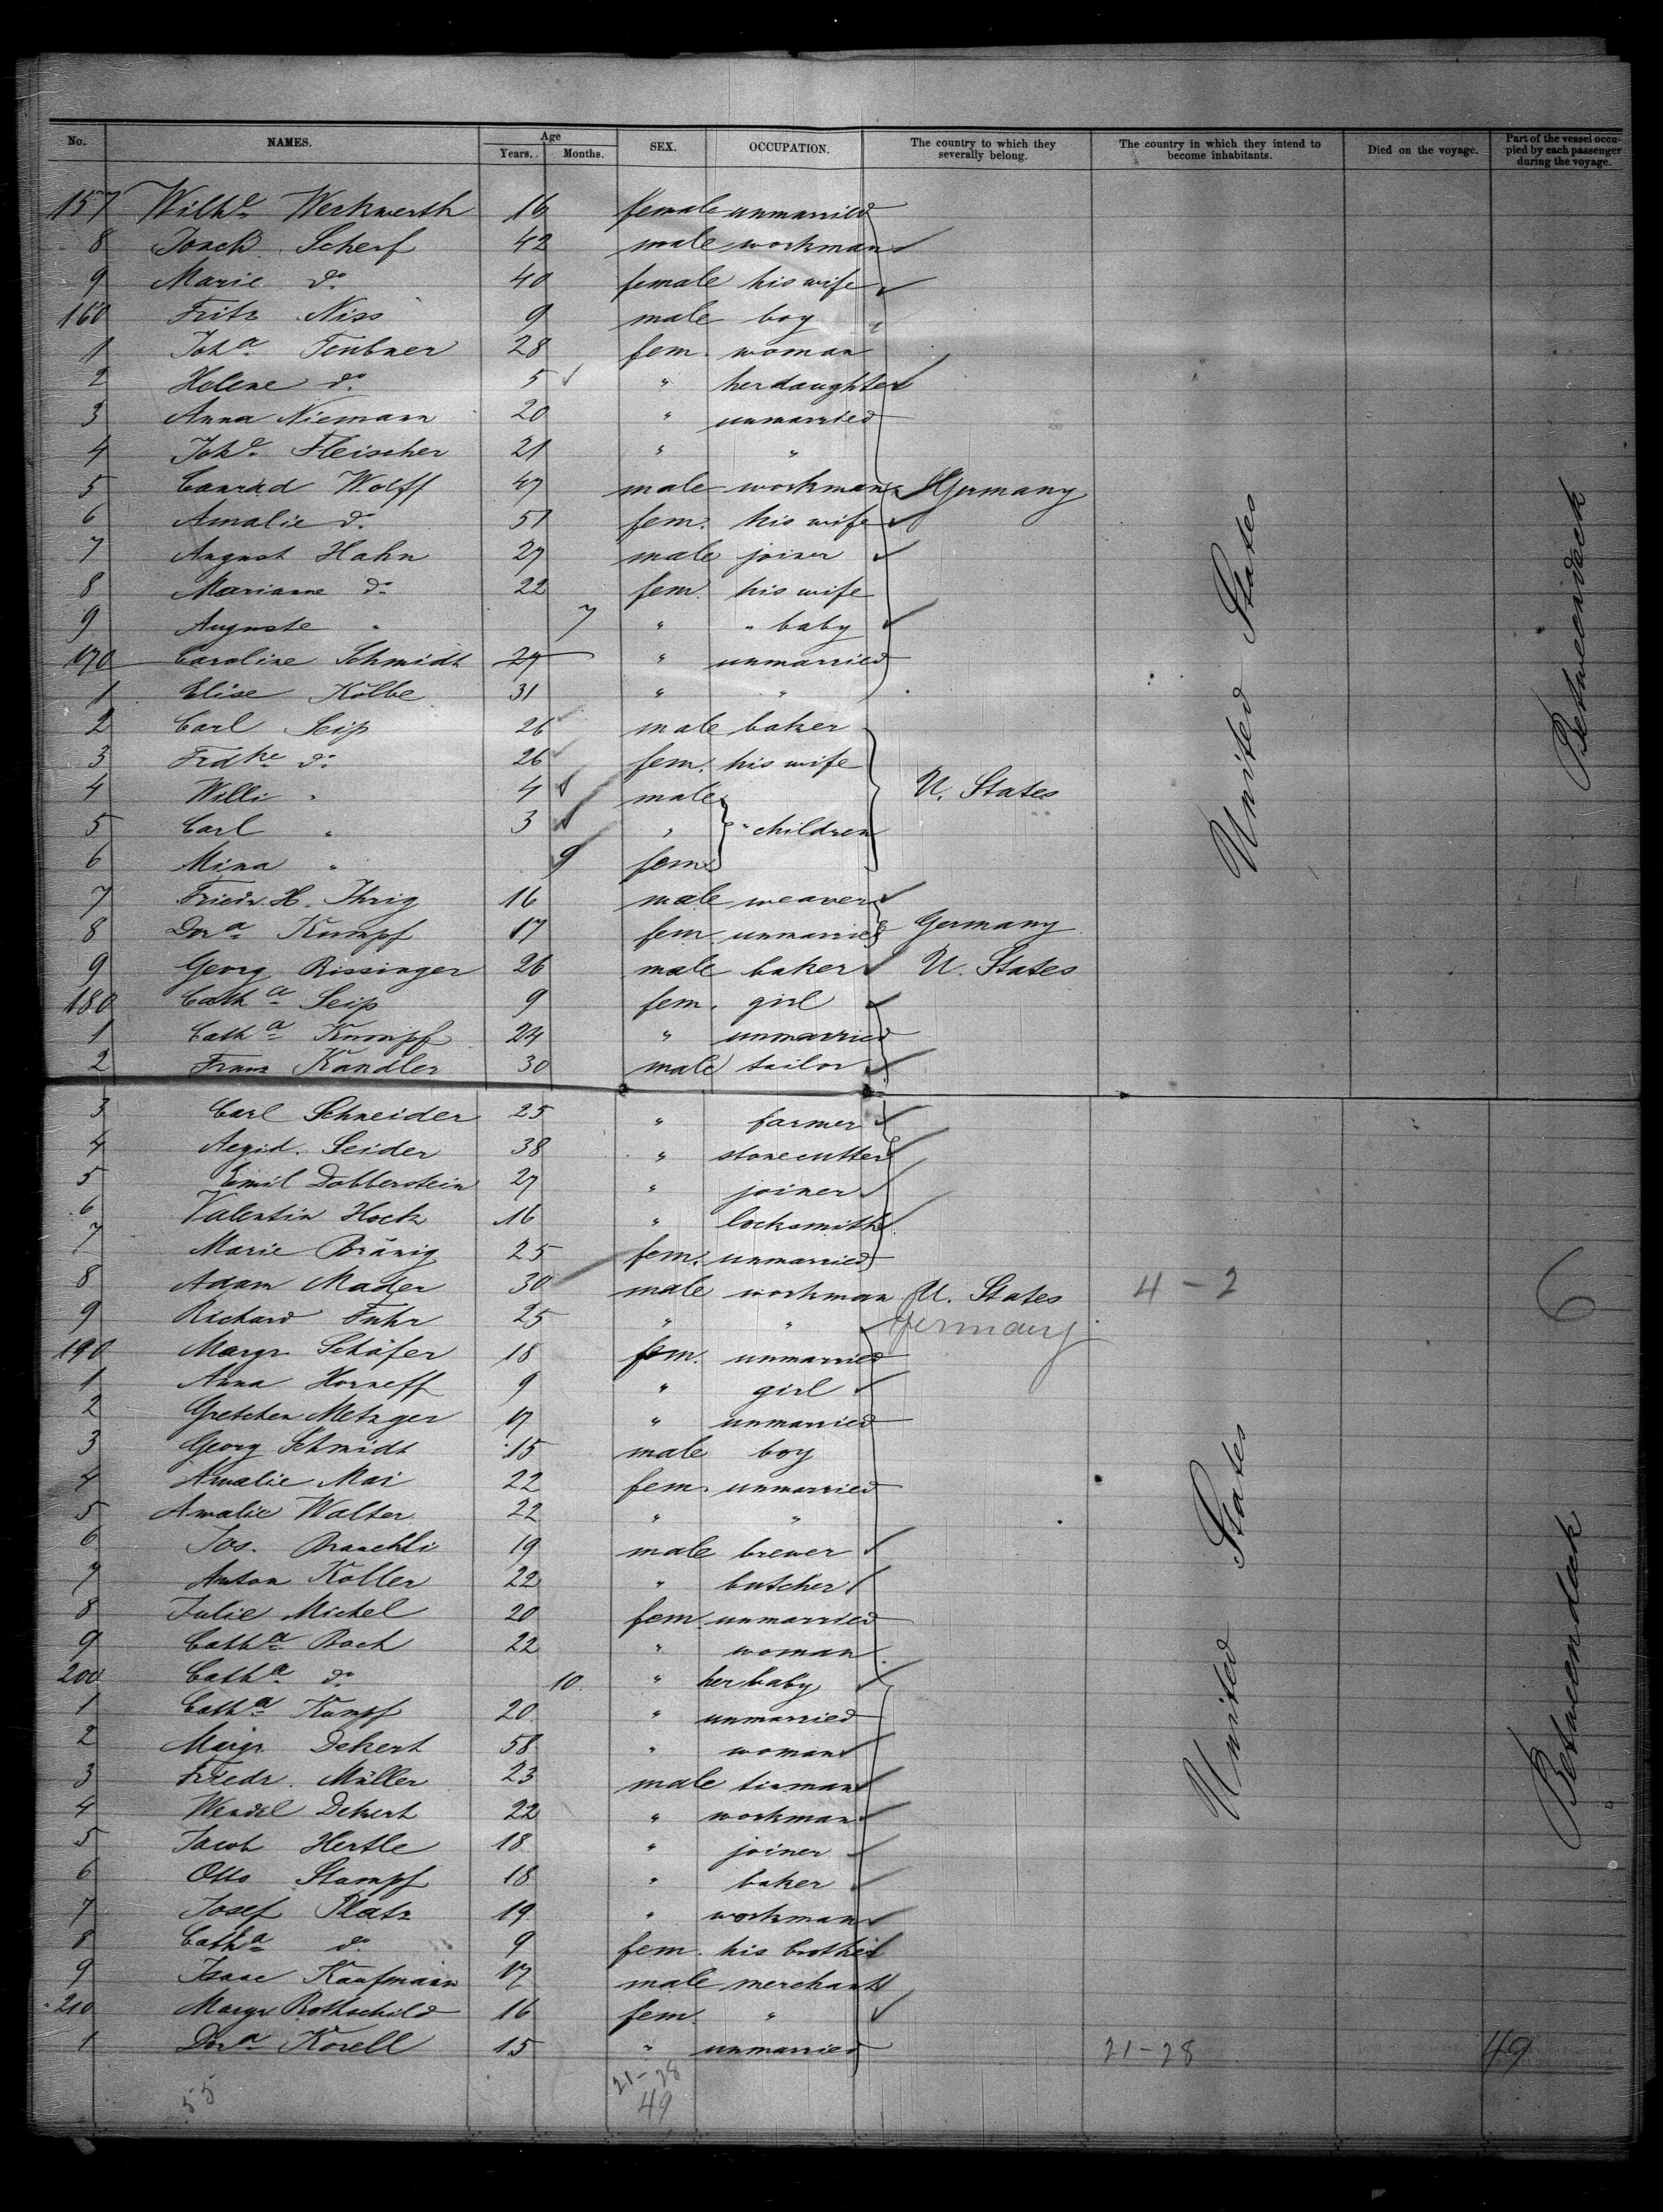 No. NAMES. Age Years. Months. SEX. OCCUPATION. The country to which they severally belong. The country in which they intend to become inhabitants. Died on the voyage. Part of the vessel occupied by each passenger during the voyage.
157 Wilhe Werkwerth 16 female unmarried
8 Joach. Scherf 42 male workman
9 Marie do 40 female his wife
160 Fritz Niss 9 male boy
1 Joha Teubner 28 fem. woman
2 Helene do 5 " her daughter
3 Anna Niemann 20 " unmarried
4 Johe Fleischer 21 " "
5 Conrad Wolff 47 male workman Germany
6 Amalie do 51 fem. his wife
7 August Hahn 27 male joiner
8 Marianne do 22 fem. his wife
9 Auguste " 7 " " baby
170 Caroline Schmidt 27 " unmarried
1 Elise Kölbe 31 " "
2 Carl Seip 26 male baker
3 Frdke do 26 fem. his wife
4 Willi " 4 male U. States
5 Carl " 3 " " children
6 Mina " 9 fem
7 Friedr. H. Ihrig 16 male weaver
8 Dora Kumpf 17 fem. unmarried Germany
9 Georg Rissinger 26 male baker U. States
180 Catha Seip 9 fem. girl
1 Catha Kumpf 24 " unmarried
2 Franz Kandler 30 male tailor
United States
Betweendeck
3 Carl Schneider 25 " farmer
4 Aegid. Seider 38 " stonecutter
5 Emil Dobberstein 27 " joiner
6 Valentin Hock 16 " locksmith
7 Marie Bränig 25 fem. unmarried
8 Adam Mader 30 male workman U. States 4 - 2 6
9 Richard Fuhr 25 " " Germany
190 Margr Schäfer 18 fem. unmarried
1 Anna Horneff 9 " girl
2 Gretchen Metzger 17 " unmarried
3 Georg Schmidt 15 male boy
4 Amalie Mai 22 fem. unmarried
5 Amalie Walter 22 " "
6 Jos. 19 male brewer
7 Anton Koller 22 " butcher
8 Julie Michel 20 fem unmarried
9 Catha Bach 22 " woman
200 Catha do 10 " her baby
1 Catha Kumpf 20 " unmarried
2 Margr Dekert 58 " woman
3 Friedr. Müller 23 male tinman
4 Wendel Dekert 22 " workman
5 Jacob Hertle 18 " joiner
6 Otto Stumpf 18 " baker
7 Josef Platz 19 " workman
8 Catha do 9 fem. his brother
9 Isaac Kaufmann 17 male merchant
210 Margr Rothschild 16 fem. "
1 Dora Korell 15 " unmarried 21-28 49
United States
Betweendeck
55 21-28
49